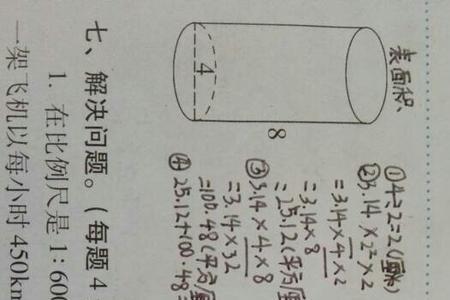 表面积:
4
8
①4÷2=2(厘米)
②3.14×2²×2
=3.14×4×2
=3.14×8
=25.12(平方厘
③3.14×4×8
=3.14×32
=100.48(平方厘
④25.12+100.48=
七、解决问题。(每题4
1. 在比例尺是1:600
一架飞机以每小时450km